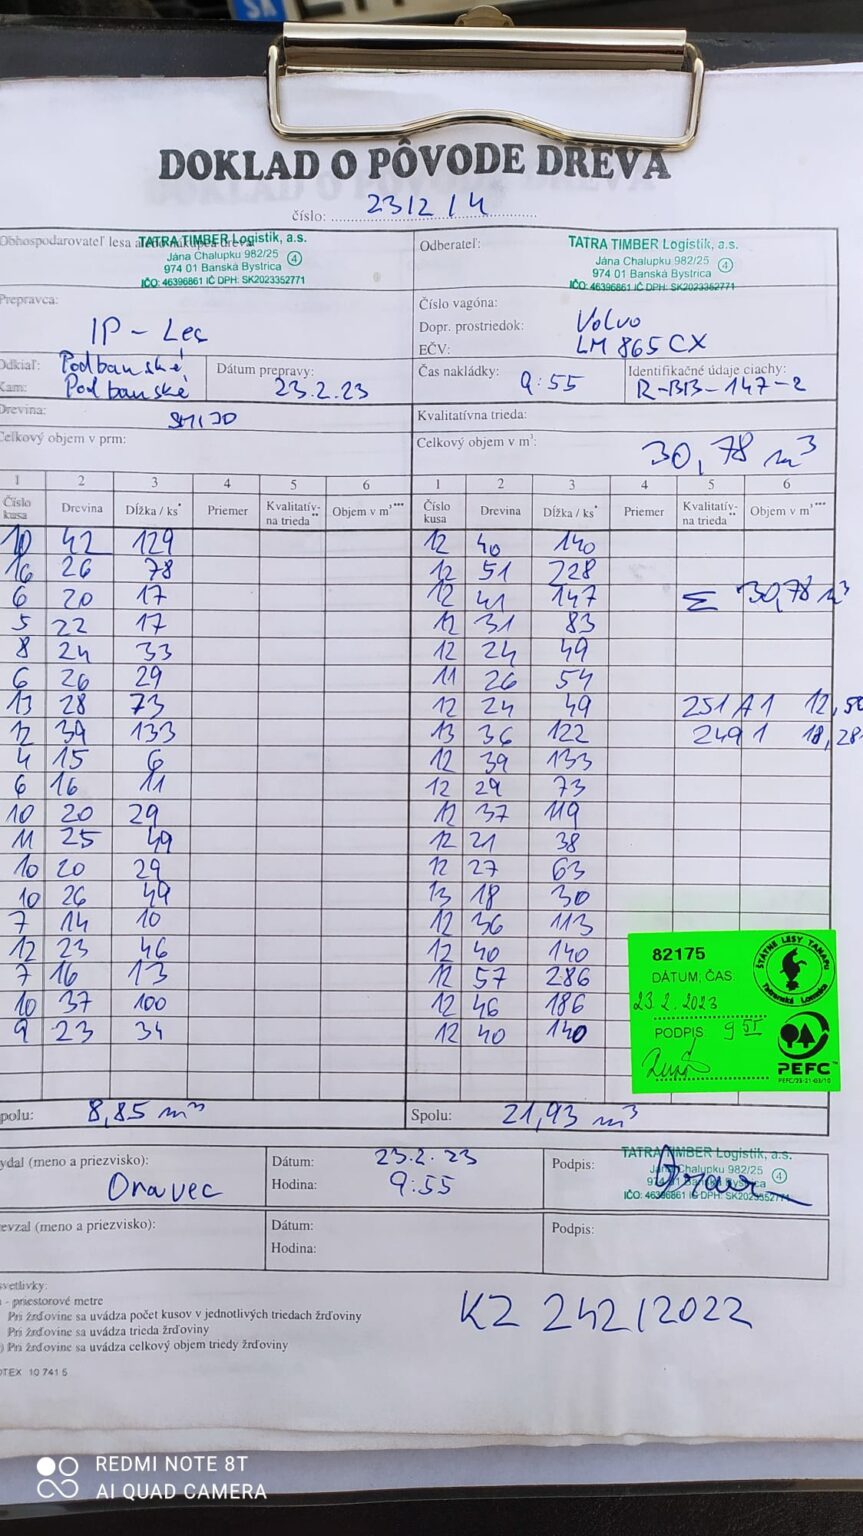 SK
DOKLAD O PÔVODE DREVA
číslo: 2312/4
Obhospodarovateľ lesa
TATRA TIMBER Logistik, a.s.
Jána Chalupku 982/25
974 01 Banská Bystrica
IČO: 46396861 IČ DPH: SK2023352771
4
Odberateľ:
TATRA TIMBER Logistik, a.s.
Jána Chalupku 982/25
974 01 Banská Bystrica
IČO: 46396861 IČ DPH: SK2023352771
4
Prepravca:
IP - Les
Číslo vagóna:
Dopr. prostriedok: Volvo
EČV: LM 865 CX
Odkiaľ: Podbanské
Kam: Podbanské
Dátum prepravy:
23.2.23
Čas nakládky:
9:55
Identifikačné údaje ciachy:
R-BB-147-2
Drevina:
Kvalitatívna trieda:
Celkový objem v prm:
Celkový objem v m³: 30,78 m³
1 2 3 4 5 6 1 2 3 4 5 6
Číslo kusa Drevina Dĺžka / ks* Priemer Kvalitatív-na trieda** Objem v m³*** Číslo kusa Drevina Dĺžka / ks* Priemer Kvalitatív-na trieda** Objem v m³***
10 42 129 12 40 140
16 26 78 12 51 228
6 20 17 12 41 147 Σ 30,78 m³
5 22 17 12 31 83
8 24 33 12 24 49
6 26 29 11 26 54
13 28 73 12 24 49 251 A1 12,50
12 39 133 13 36 122 249 1 18,28
4 15 6 12 39 133
6 16 11 12 29 73
10 20 29 12 37 119
11 25 49 12 21 38
10 20 29 12 27 63
10 26 49 13 18 30
7 14 10 12 36 113
12 23 46 12 40 140
7 16 13 12 57 286
10 37 100 12 46 186
9 23 34 12 40 140
82175
DÁTUM, ČAS:
23.2.2023
PODPIS: 9 55
ŠTÁTNE LESY TANAPU
Tatranská Lomnica
PEFC™
PEFC/23-21-03/10
polu: 8,85 m³
Spolu: 21,93 m³
ydal (meno a priezvisko):
Oravec
Dátum: 23.2.23
Hodina: 9:55
Podpis:
TATRA TIMBER Logistik, a.s.
Jána Chalupku 982/25
974 01 Banská Bystrica
IČO: 46396861 IČ DPH: SK2023352771
4
evzal (meno a priezvisko):
Dátum:
Hodina:
Podpis:
svetlivky:
- priestorové metre
Pri žrďovine sa uvádza počet kusov v jednotlivých triedach žrďoviny
Pri žrďovine sa uvádza trieda žrďoviny
) Pri žrďovine sa uvádza celkový objem triedy žrďoviny
OTEX 10 741 5
KZ 242/2022
REDMI NOTE 8T
AI QUAD CAMERA